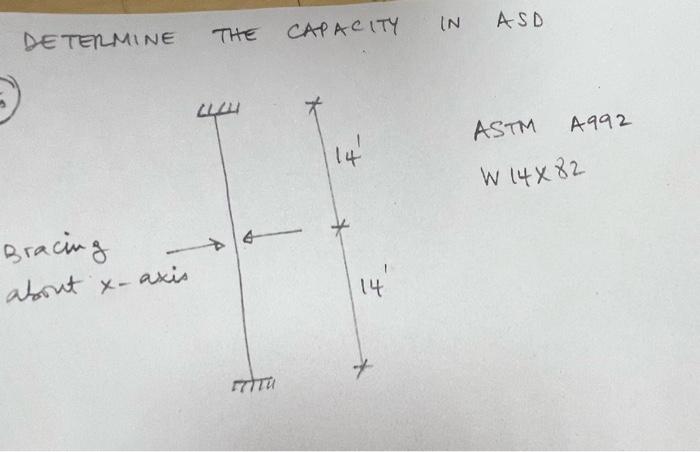 DETERMINE THE CAPACITY IN ASD
14'
ASTM A992
W 14X82
Bracing
about x-axis
14'